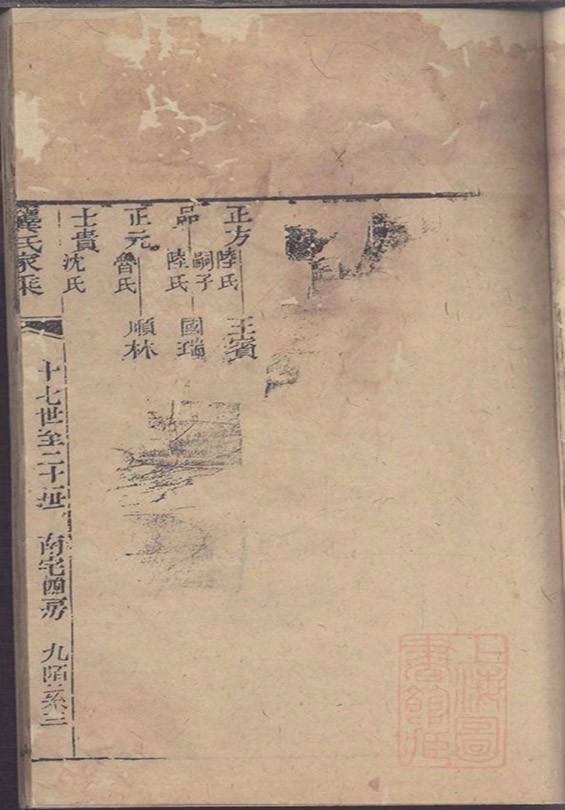 正方 陸氏 嗣子 王賓
品 陸氏 國瑞
正元 魯氏 順林
士貴 沈氏
龔氏家乘
十七世至二十世 南宅 房 九陌 三
上海圖書館